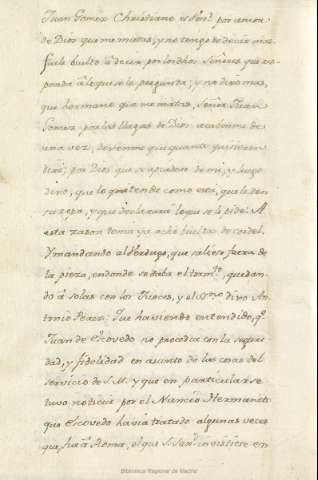 Juan Gomez Christiano es Senr. por amor
de Dios que me matas; y no tengo de decir mas.
fuele buelto á decir por los dhos Señores que res-
ponda á lo que se le pregunta; y no dijo mas,
que hermano que me matas, Señor Juan
Gomez por las llagas de Dios acabenme de
una vez, dexenme que quanto quisieren
diré; por Dios que se apiaden de mi, y luego
dixo, que lo quiten de como esta, que le den
su ropa, y que declarará lo que se le pide: A
esta razon tenia ya ocho bueltas de cordel.
Y mandando al Verdugo, que saliese fuera de
la pieza, endonde se daba el tormto., quedan-
do á solas con los Jueces, y el Srno. dixo An-
tonio Perez: Que haviendo entendido, qe.
Juan de Escovedo no procedia con la seguri-
dad, y fidelidad en asunto de las cosas del
servicio de S. M. y que en particular se
tuvo noticia por el Nuncio Hermaneto
que Escovedo havia tratado algunas veces
que fue á Roma, el que Su Sand. insistiere en
Biblioteca Regional de Madrid